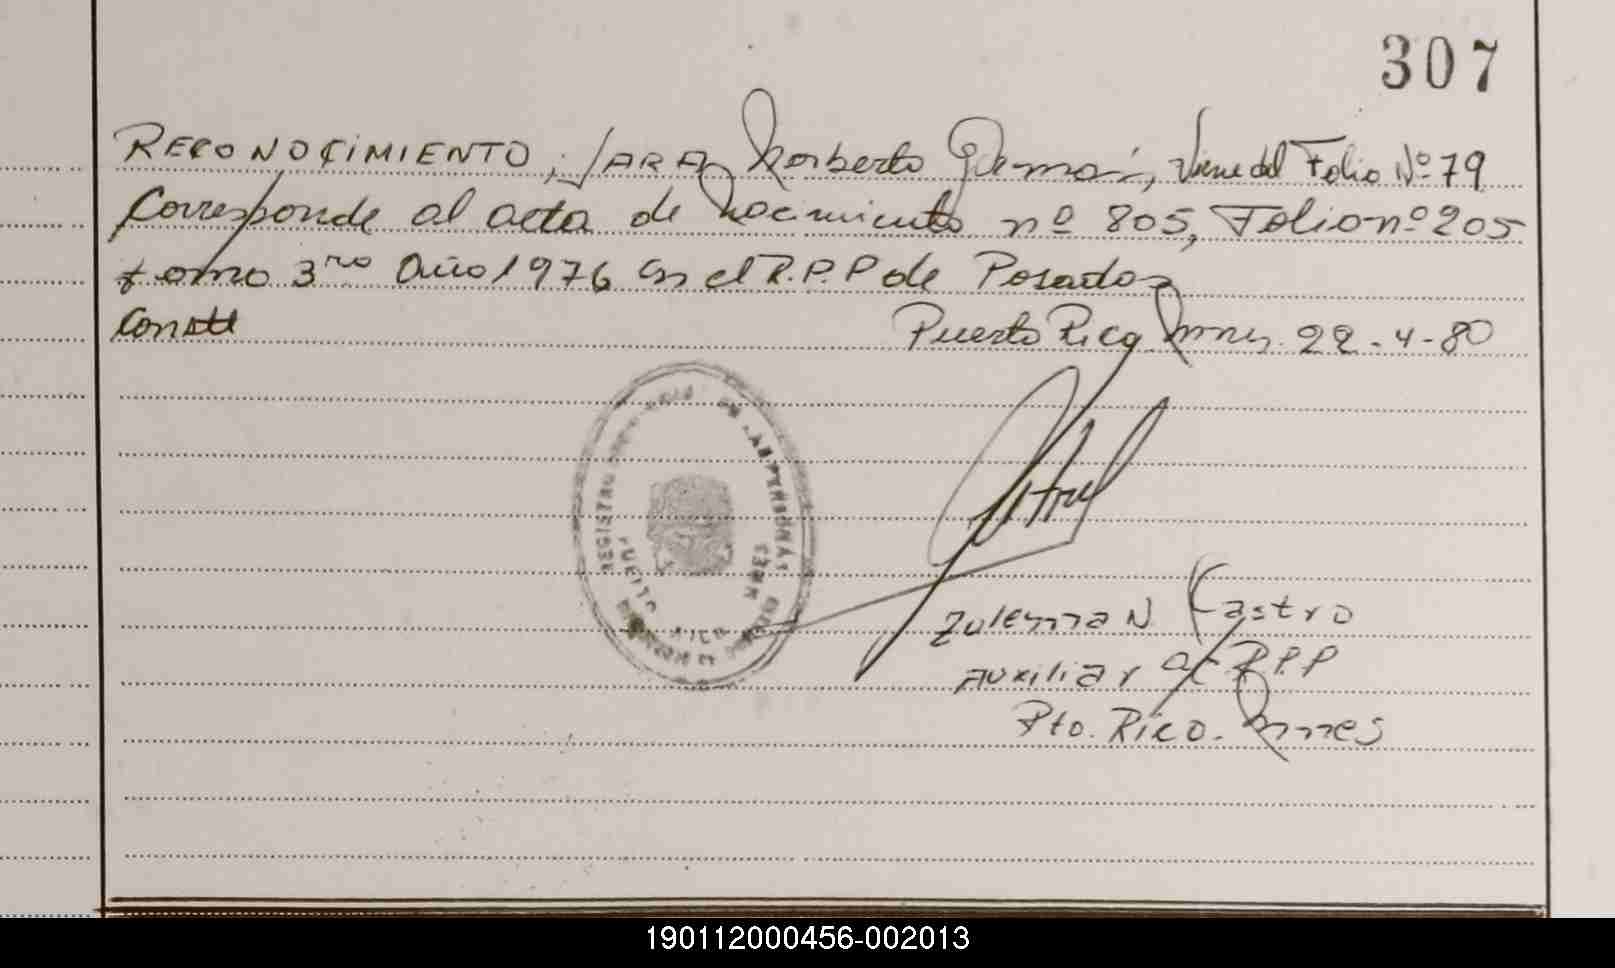 307
RECONOCIMIENTO, JARA, Norberto Germán, Viene del Folio Nº 79
Corresponde al acta de nacimiento nº 805, Folio nº 205
tomo 3ro Año 1976 en el R.P.P de Posadas
Conste Puerto Rico Mnes. 22-4-80
REGISTRO DE LAS PERSONAS
PUERTO RICO
Zulema N. Castro
Auxiliar de R.P.P
Pto. Rico. Mnes
190112000456-002013